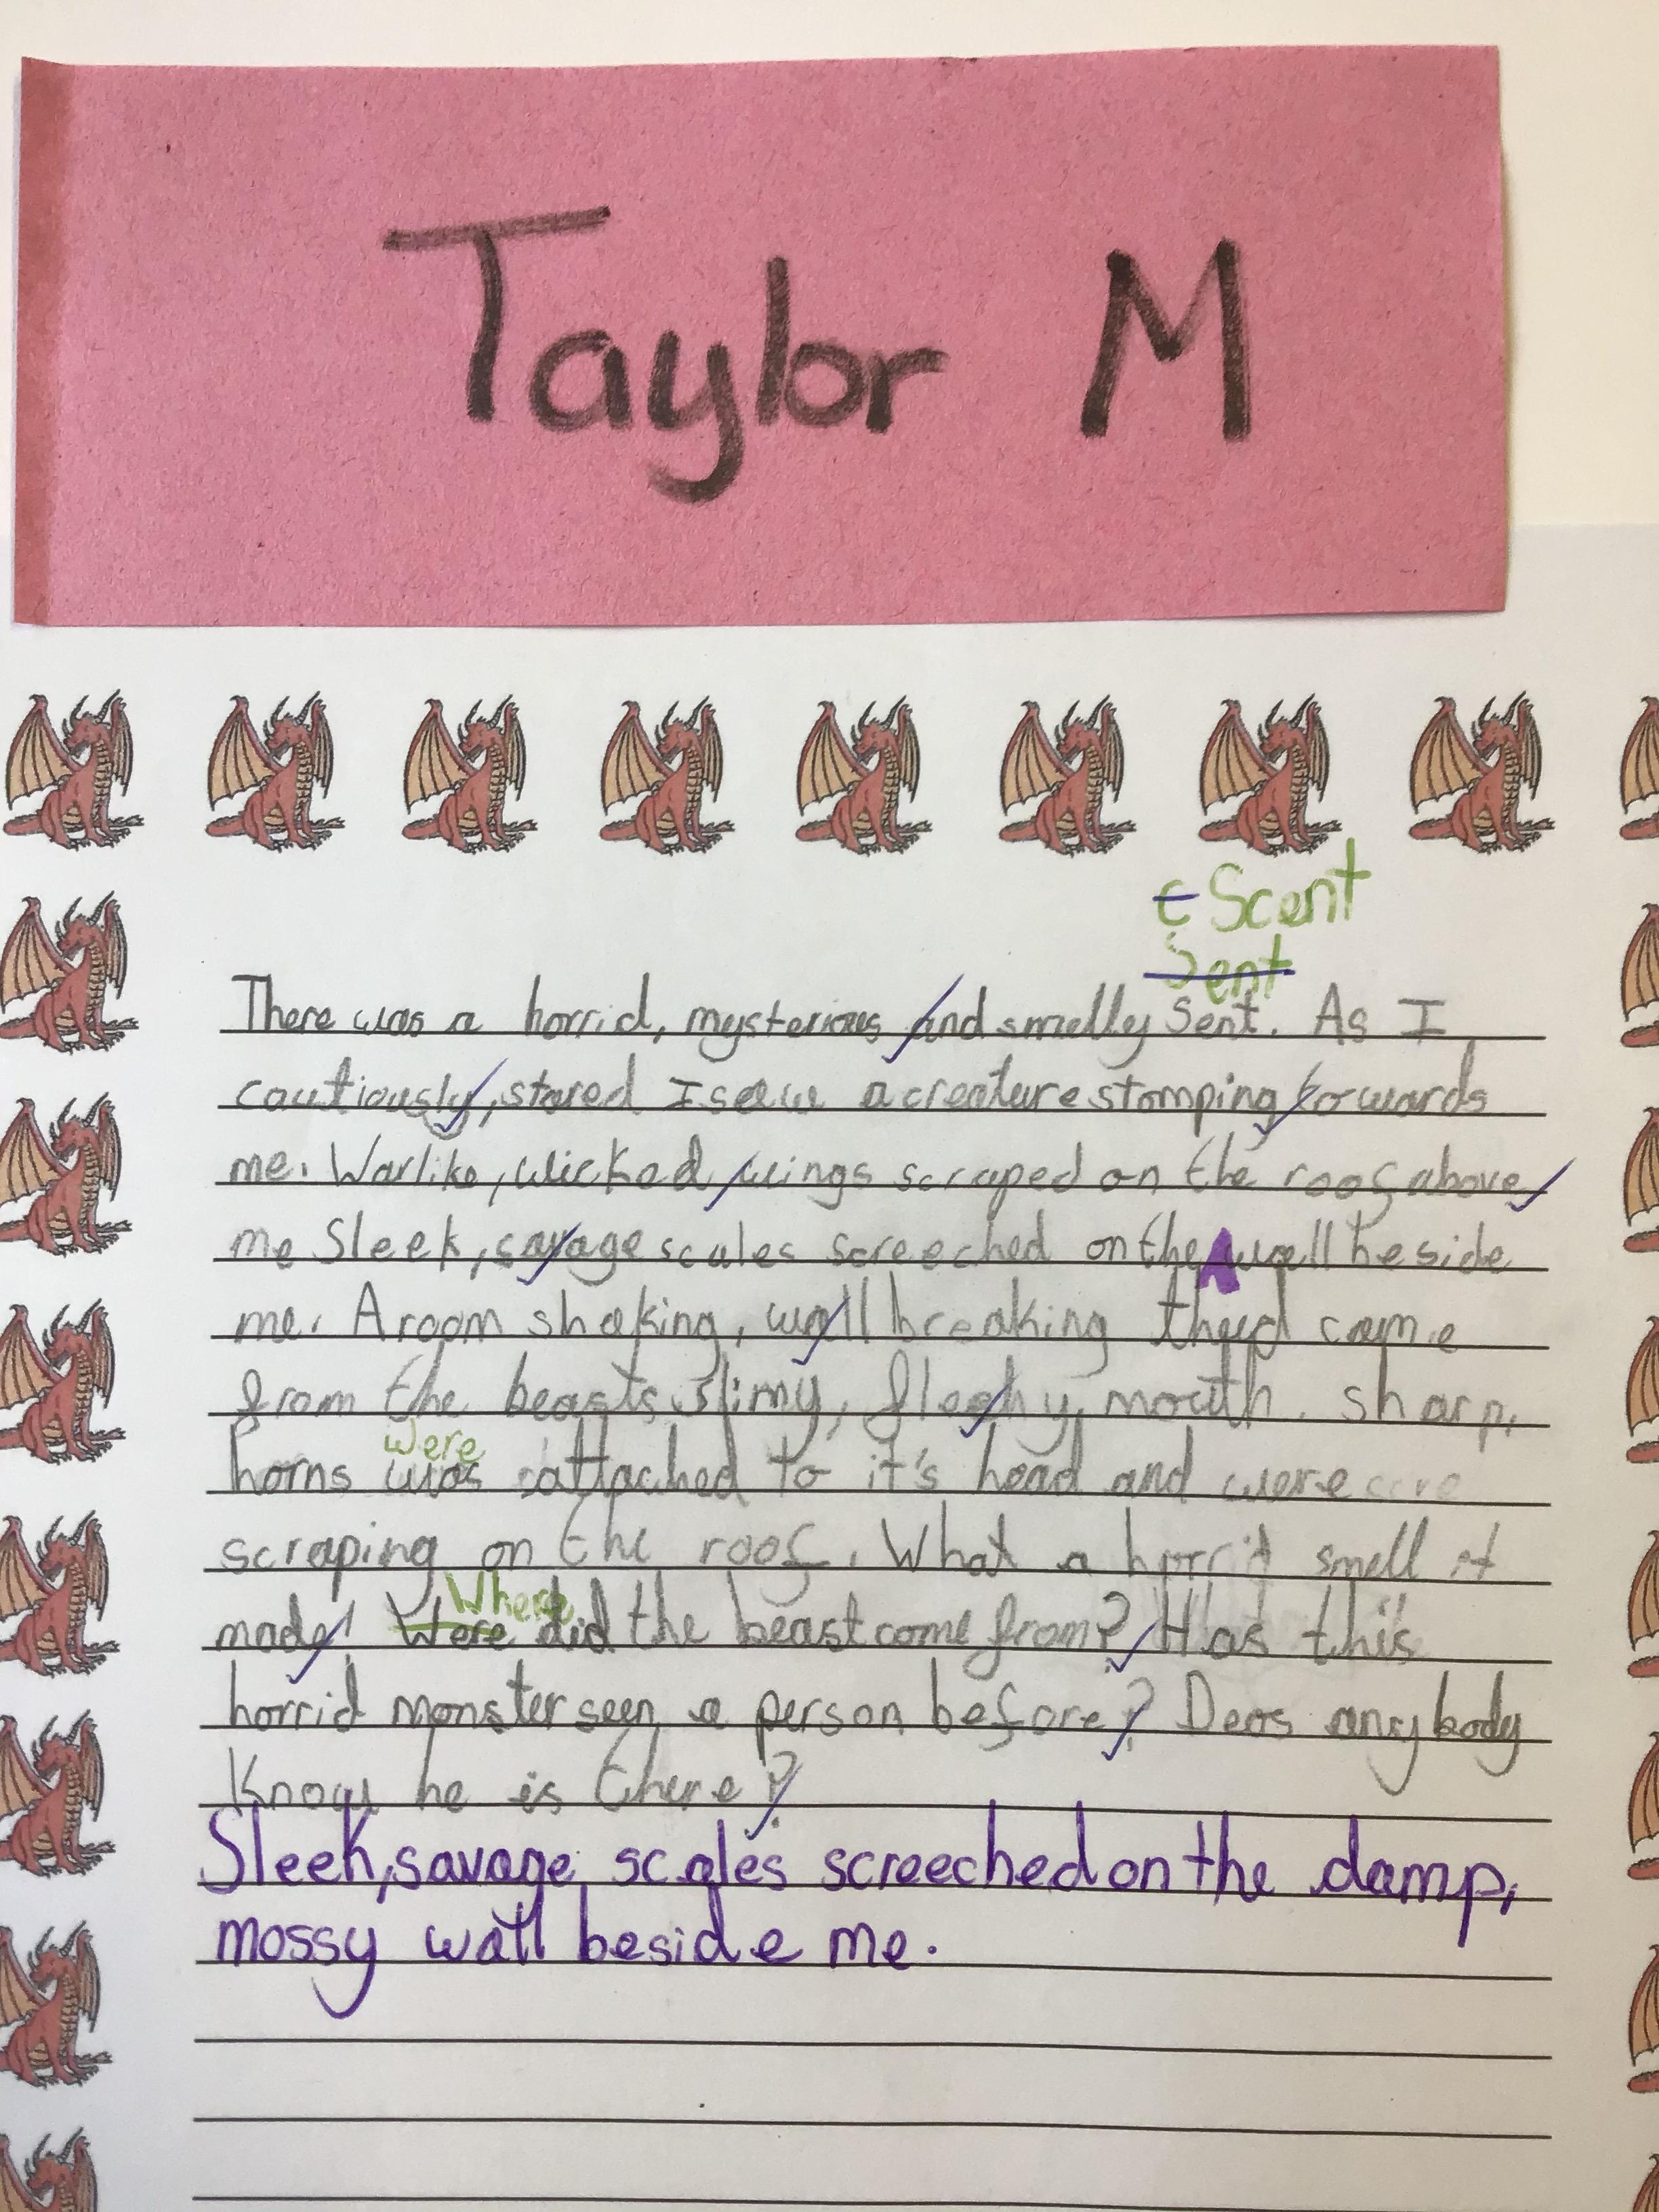 Taylor M
Scent
Sent
There was a horrid, mysterious and smelly sent. As I
cautiously, stared I saw a creature stomping towards
me. Warlike, wicked wings scraped on the roof above
me Sleek, savage scales screeched on the wall beside
me. A room shaking, wall breaking thud came
from the beasts slimy, fleshy, mouth. sharp,
were
horns was attached to it's head and were
scraping on the roof. What a horrid smell it
Where
made! Were did the beast come from? Has this
horrid monster seen a person before? Deos anybody
Know he is there?
Sleek, savage scales screeched on the damp,
mossy wall beside me.